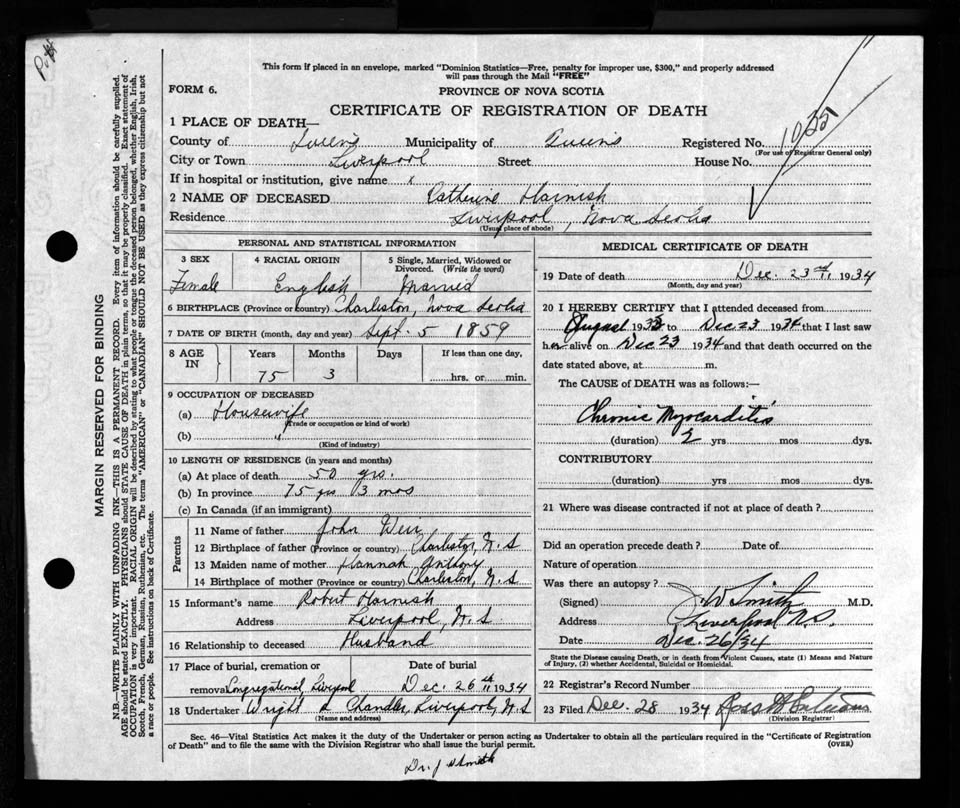 Pot
This form if placed in an envelope, marked "Dominion Statistics—Free, penalty for improper use, $300," and properly addressed
will pass through the Mail "FREE"
FORM 6.
PROVINCE OF NOVA SCOTIA
CERTIFICATE OF REGISTRATION OF DEATH
1 PLACE OF DEATH—
County of Queens Municipality of Queens Registered No. 1035
(For use of Registrar General only)
City or Town Liverpool Street House No.
If in hospital or institution, give name x
2 NAME OF DECEASED Catherine Harnish
Residence Liverpool, Nova Scotia
(Usual place of abode)
PERSONAL AND STATISTICAL INFORMATION
3 SEX 4 RACIAL ORIGIN 5 Single, Married, Widowed or
Divorced. (Write the word)
Female English Married
6 BIRTHPLACE (Province or country) Charleston, Nova Scotia
7 DATE OF BIRTH (month, day and year) Sept. 5 1859
8 AGE IN Years Months Days If less than one day,
75 3 hrs. or min.
9 OCCUPATION OF DECEASED
(a) Housewife
(Trade or occupation or kind of work)
(b) "
(Kind of industry)
10 LENGTH OF RESIDENCE (in years and months)
(a) At place of death 50 yrs.
(b) In province 75 yrs 3 mos
(c) In Canada (if an immigrant)
Parents
11 Name of father John Weir
12 Birthplace of father (Province or country) Charleston, N.S
13 Maiden name of mother Hannah Anthony
14 Birthplace of mother (Province or country) Charleston, N.S
15 Informant's name Robert Harnish
Address Liverpool, N.S
16 Relationship to deceased Husband
17 Place of burial, cremation or Date of burial
removal Congregational, Liverpool Dec. 26th 1934
18 Undertaker Wright & Chandler, Liverpool, N.S
(Name and address)
MEDICAL CERTIFICATE OF DEATH
19 Date of death Dec. 23rd, 1934
(Month, day and year)
20 I HEREBY CERTIFY that I attended deceased from
August 1933 to Dec 23 1934 that I last saw
her alive on Dec 23 1934 and that death occurred on the
date stated above, at m.
The CAUSE of DEATH was as follows:
Chronic Myocarditis
(duration) 2 yrs mos dys.
CONTRIBUTORY
(duration) yrs mos dys.
21 Where was disease contracted if not at place of death?
Did an operation precede death? Date of
Nature of operation
Was there an autopsy?
(Signed) J. W Smith M.D.
Address Liverpool N.S.
Date Dec. 26/34
State the Disease causing Death, or in death from Violent Causes, state (1) Means and Nature
of Injury, (2) whether Accidental, Suicidal or Homicidal.
22 Registrar's Record Number
23 Filed Dec. 28 1934 Ross
(Division Registrar)
Sec. 46—Vital Statistics Act makes it the duty of the Undertaker or person acting as Undertaker to obtain all the particulars required in the "Certificate of Registration
of Death" and to file the same with the Division Registrar who shall issue the burial permit.
(OVER)
Dr. J W Smith
MARGIN RESERVED FOR BINDING
N.B.—WRITE PLAINLY WITH UNFADING INK—THIS IS A PERMANENT RECORD. Every item of information should be carefully supplied.
AGE should be stated EXACTLY. PHYSICIANS should STATE CAUSE OF DEATH in plain terms, so that it may be properly classified. Exact statement of
OCCUPATION is very important. RACIAL ORIGIN will be described by stating to what people or tongue the deceased person belonged, whether English, Irish,
Scotch, French, German, Russian, Ruthenian, etc. The terms "AMERICAN" or "CANADIAN" SHOULD NOT BE USED as they express citizenship but not
a race or people. See instructions on back of Certificate.